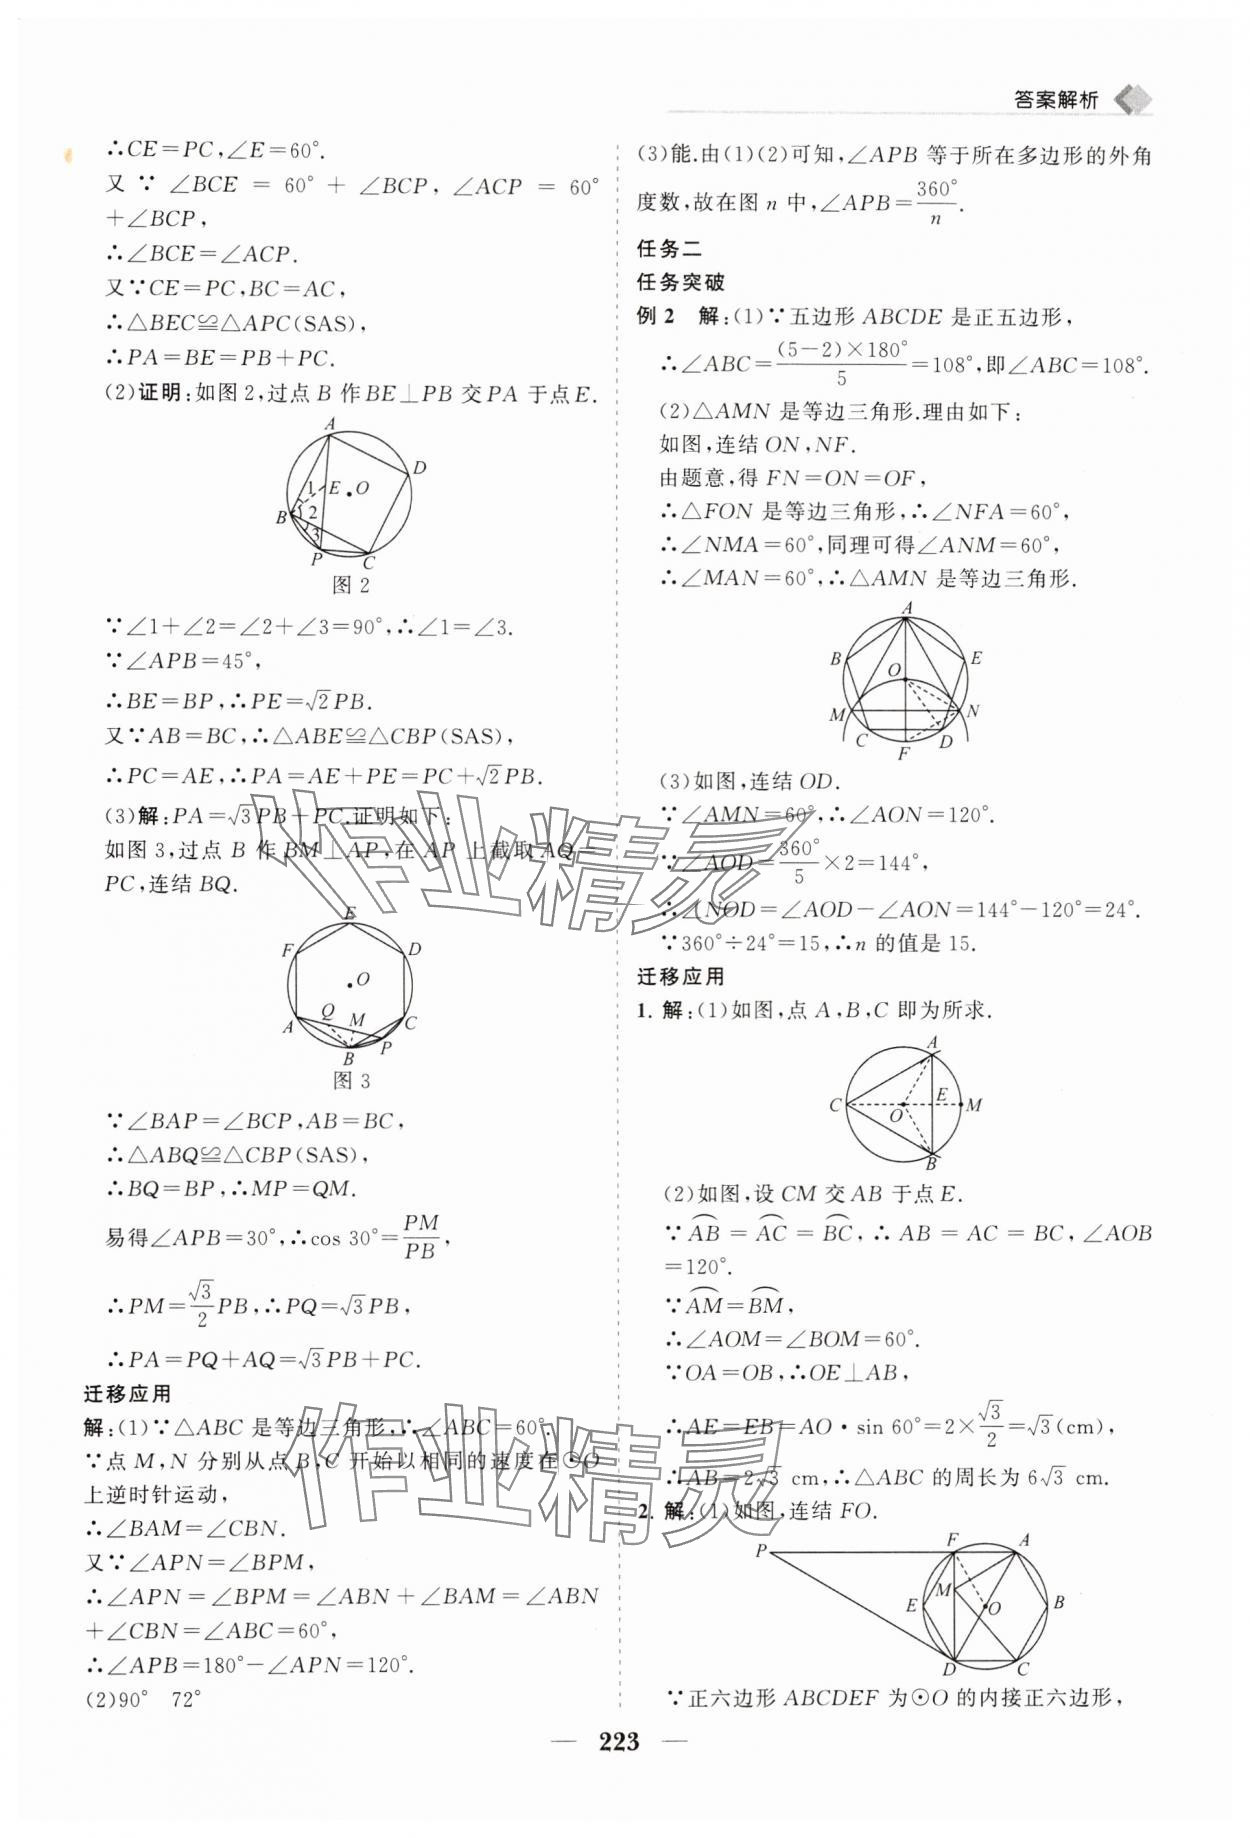 答案解析
∴CE=PC,∠E=60°.
又∵ ∠BCE = 60° + ∠BCP, ∠ACP = 60°
+∠BCP,
∴∠BCE=∠ACP.
又∵CE=PC,BC=AC,
∴△BEC≌△APC(SAS),
∴PA=BE=PB+PC.
(2)证明:如图2,过点B作BE⊥PB交PA于点E.
A
D
1
E
O
B
2
3
P
C
图2
∵∠1+∠2=∠2+∠3=90°,∴∠1=∠3.
∵∠APB=45°,
∴BE=BP,∴PE=√2PB.
又∵AB=BC,∴△ABE≌△CBP(SAS),
∴PC=AE,∴PA=AE+PE=PC+√2PB.
(3)解:PA=√3PB+PC.证明如下:
如图3,过点B作BM⊥AP,在AP上截取AQ=
PC,连结BQ.
E
F
D
O
Q
M
A
C
B
P
图3
∵∠BAP=∠BCP,AB=BC,
∴△ABQ≌△CBP(SAS),
∴BQ=BP,∴MP=QM.
易得∠APB=30°,∴cos 30°=PM/PB,
∴PM=√3/2PB,∴PQ=√3PB,
∴PA=PQ+AQ=√3PB+PC.
迁移应用
解:(1)∵△ABC是等边三角形,∴∠ABC=60°.
∵点M,N分别从点B,C开始以相同的速度在⊙O
上逆时针运动,
∴∠BAM=∠CBN.
又∵∠APN=∠BPM,
∴∠APN=∠BPM=∠ABN+∠BAM=∠ABN
+∠CBN=∠ABC=60°,
∴∠APB=180°-∠APN=120°.
(2)90° 72°
(3)能.由(1)(2)可知,∠APB等于所在多边形的外角
度数,故在图n中,∠APB=360°/n.
任务二
任务突破
例2 解:(1)∵五边形ABCDE是正五边形,
∴∠ABC=(5-2)×180°/5=108°,即∠ABC=108°.
(2)△AMN是等边三角形.理由如下:
如图,连结ON,NF.
由题意,得FN=ON=OF,
∴△FON是等边三角形,∴∠NFA=60°,
∴∠NMA=60°,同理可得∠ANM=60°,
∴∠MAN=60°,∴△AMN是等边三角形.
A
B
E
O
M
N
C
D
F
(3)如图,连结OD.
∵∠AMN=60°,∴∠AON=120°.
∵∠AOD=360°/5×2=144°,
∴∠NOD=∠AOD-∠AON=144°-120°=24°.
∵360°÷24°=15,∴n的值是15.
迁移应用
1. 解:(1)如图,点A,B,C即为所求.
A
C
O
E
M
B
(2)如图,设CM交AB于点E.
∵⌒AB = ⌒AC = ⌒BC,∴ AB = AC = BC,∠AOB
=120°.
∵⌒AM=⌒BM,
∴∠AOM=∠BOM=60°.
∵OA=OB,∴OE⊥AB,
∴AE=EB=AO·sin 60°=2×√3/2=√3(cm),
∴AB=2√3 cm,∴△ABC的周长为6√3 cm.
2. 解:(1)如图,连结FO.
P
F
A
M
E
O
B
D
C
∵正六边形ABCDEF为⊙O的内接正六边形,
— 223 —
作业精灵
作业精灵